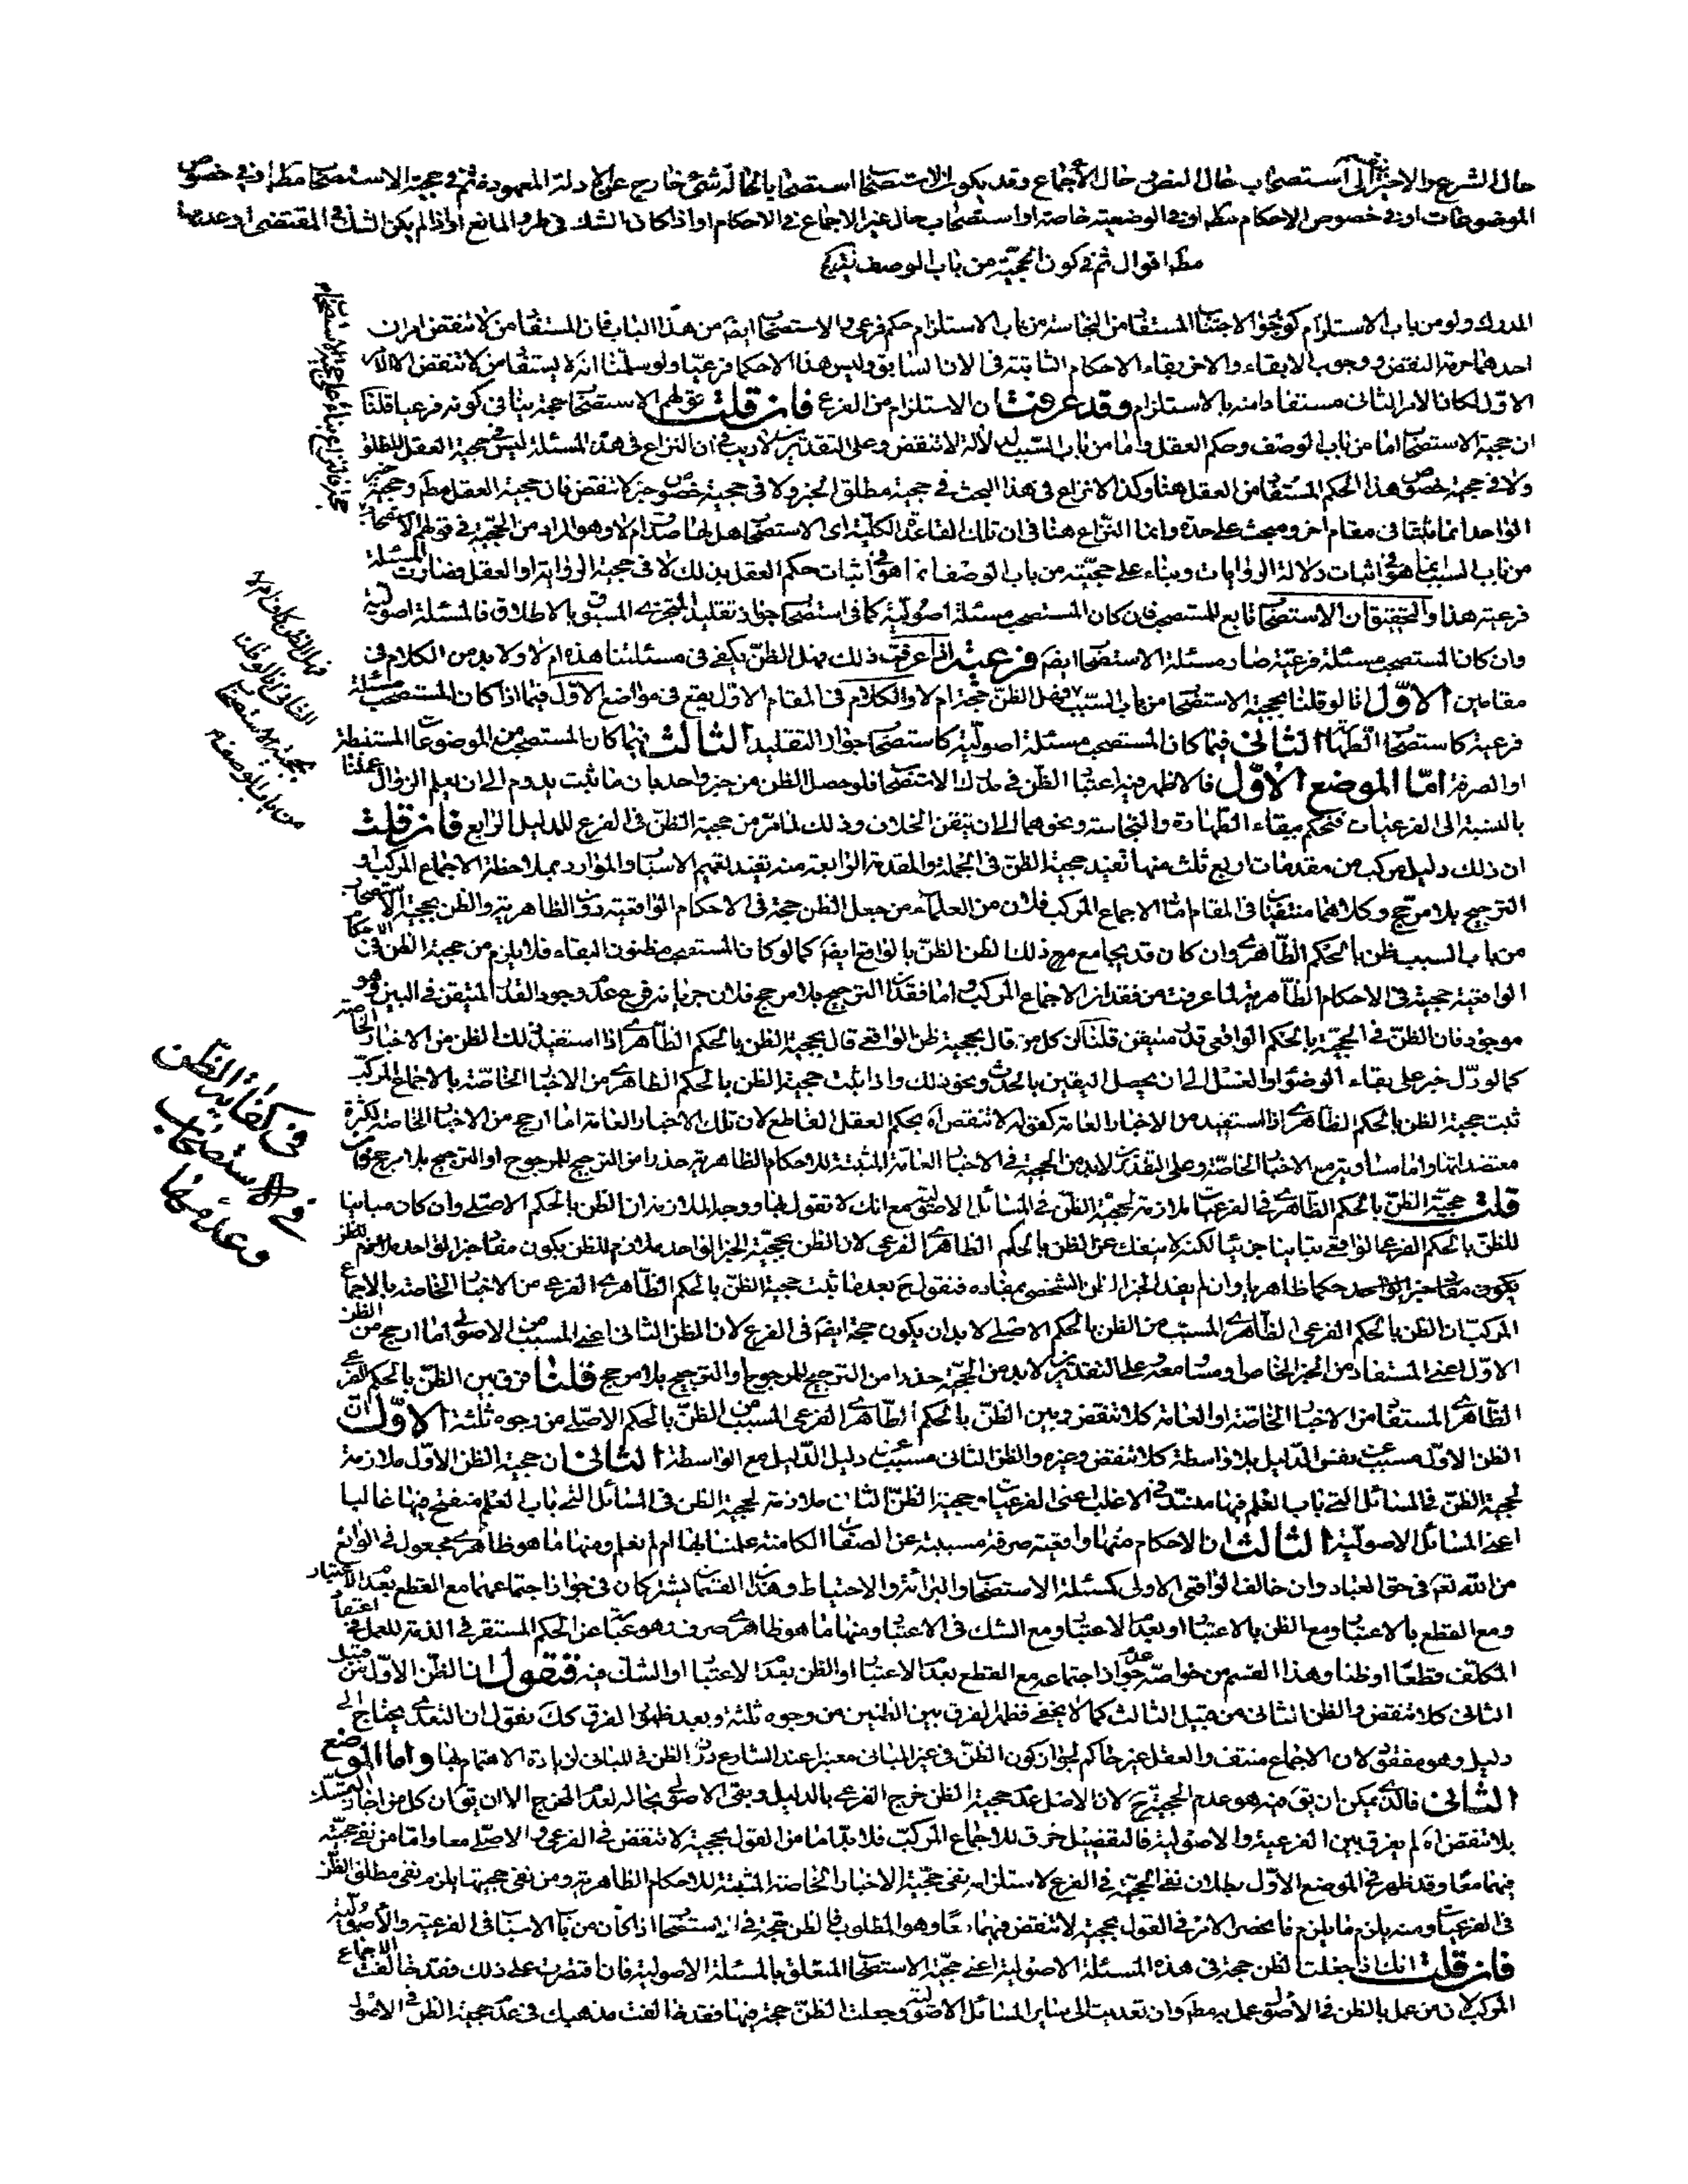 حال الشرع والاخير الى استصحاب حال النص وحال الاجماع وقد يكون الاستصحاب استصحابا بالحاله شئ خارج عن الادلة المعهودة ثم في حجية الاستصحاب مط او في خصوص
الموضوعات او في خصوص الاحكام مط او في الوضعية خاصة او استصحاب حال غير الاجماع في الاحكام او اذا كان الشك في طرو المانع او اذا لم يكن الشك في المقتضى او عدمها
مط اقوال ثم في كون الحجية من باب الوصف
المدرك ولو من باب الاستلزام كوجوب الاجتناب المستفاد من النجاسة من باب الاستلزام حكم فرعي والاستصحاب ايضا من هذا الباب فان المستفاد من لا تنقض امران
احدهما حرمة النقض ووجوب الابقاء والاخر بقاء الاحكام الثابتة في الان السابق وليس هذا الاحكما فرعيا ولو سلمنا انه لا يستفاد من لا تنقض الا
الاول لكان الامر الثاني مستفادا منه بالاستلزام وقد عرفت ان الاستلزام من الفرع فان قلت قولهم الاستصحاب حجة ينافي كونه فرعيا قلنا
ان حجية الاستصحاب اما من باب الوصف وحكم العقل واما من باب السبب لدلالة لا تنقض وعلى التقديرين لا ريب في ان النزاع في هذه المسئلة ليس في حجية العقل
ولا في حجية خصوص هذا الحكم المستفاد من العقل هنا وكذا لا نزاع في هذا البحث في حجية مطلق الخبر ولا في حجية خصوص خبر لا تنقض فان حجية العقل مط وحجية خبر
الواحد انما في مقام اخر ومبحث على حدة وانما النزاع هنا في ان تلك القاعدة الكلية اى الاستصحاب هل لها ام لا وهو المراد من الحجية في قولهم الاستصحاب
من باب السبب انما هو في اثبات دلالة الروايات وبناء على حجيته من باب الوصف انما هو في اثبات حكم العقل بذلك لا في حجية الرواية او العقل فصارت المسئلة
فرعية هذا والتحقيق ان الاستصحاب تابع للمستصحب فان كان المستصحب مسئلة اصولية كما في استصحاب جواز تقليد المتجزى المسبوق بالاطلاق فالمسئلة اصولية
وان كان المستصحب مسئلة فرعية صار مسئلة الاستصحاب ايضا فرعية اذا عرفت ذلك فهل الظن يكفي في مسئلتنا هذه ام لا ولا بد من الكلام في
مقامين الاول انا لو قلنا بحجية الاستصحاب من باب السبب فهل الظن حجة ام لا والكلام في المقام الاول يقع في مواضع الاول فيما اذا كان المستصحب مسئلة
فرعية كاستصحاب الطهارة الثاني فيما كان المستصحب مسئلة اصولية كاستصحاب جواز التقليد الثالث فيما كان المستصحب من الموضوعات المستنبطة
او الصرفة اما الموضع الاول فالاظهر فيه اعتبار الظن في مدرك الاستصحاب فلو حصل الظن من خبر واحد بان ما ثبت يدوم الى ان يعلم الزوال عملنا
بالنسبة الى الفرعيات فنحكم ببقاء الطهارة والنجاسة ونحوهما الى ان يتيقن الخلاف وذلك لما مر من حجية الظن في الفرع للدليل الرابع فان قلت
ان ذلك دليل مركب من مقدمات اربع ثلث منها تفيد حجية الظن في الجملة والمقدمة الرابعة منه تفيد تعميم الاسباب والموارد بملاحظة الاجماع المركب او
الترجيح بلا مرجح وكلاهما منتفيان في المقام اما الاجماع المركب فلان من العلماء من جعل الظن حجة في الاحكام الواقعية دون الظاهرية والظن بحجية الاستصحاب
من باب السبب ظن بالحكم الظاهري وان كان قد يجامع مع ذلك الظن الظن بالواقع ايضا كما لو كان المستصحب مظنون البقاء فلا يلزم من حجية الظن في الاحكام
الواقعية حجية في الاحكام الظاهرية لما عرفت من فقدان الاجماع المركب واما فقدان الترجيح بلا مرجح فلان جريانه فرع عدم وجود القدر المتيقن في البين وهو
موجود فان الظن في الحجية بالحكم الواقعي قدر متيقن قلنا ان كل من قال بحجية ظن الواقعي قال بحجية الظن بالحكم الظاهري اذا استفيد ذلك الظن من الاخبار الخاصة
كما لو دل خبر على بقاء الوضوء او الغسل الى ان يحصل اليقين بالحدث ونحو ذلك واذا ثبت حجية الظن بالحكم الظاهري من الاخبار الخاصة بالاجماع المركب
ثبت حجية الظن بالحكم الظاهري اذا استفيد من الاخبار العامة كقوله لا تنقض اه بحكم العقل القاطع لان تلك الاخبار العامة اما ارجح من الاخبار الخاصة لكثرة
معتضداتها واما مساوية مع الاخبار الخاصة وعلى التقديرين لا بد من الحجية في الاخبار العامة المثبتة للاحكام الظاهرية حذرا من الترجيح للمرجوح او الترجيح بلا مرجح
قلت حجية الظن بالحكم الظاهري في الفرعيات ملازمة لحجية الظن في المسائل الاصولية مع انك لا تقول بها ووجه الملازمة ان الظن بالحكم الاصلي وان كان مباينا
للظن بالحكم الفرعي الواقعي تباينا جزئيا لكنه لا ينفك عن الظن بالحكم الظاهري الفرعي لان الظن بحجية الخبر الواحد ملازم للظن بكون مفاد خبر الواحد
بكون مفاد خبر الواحد حكما ظاهريا وان لم يفد الخبر الظن الشخصي بمفاده فنقول ح بعد ما ثبت حجية الظن بالحكم الظاهري الفرعي من الاخبار الخاصة بالاجماع
المركب ان الظن بالحكم الفرعي الظاهري المسبب من الظن بالحكم الاصلي لا بد ان يكون حجة ايضا في الفرع لان الظن الثاني اعنى المسبب من الاصولي اما ارجح من الظن
الاول اعنى المستفاد من الخبر الخاص او مساو معه وعلى التقديرين لا بد من الحجية حذرا من الترجيح للمرجوح او الترجيح بلا مرجح قلنا فرق بين الظن بالحكم الفرعي
الظاهري المستفاد من الاخبار الخاصة او العامة كلا تنقض وبين الظن بالحكم الظاهري الفرعي المسبب من الظن بالحكم الاصلي من وجوه ثلثة الاول ان
الظن الاول مسبب عن نفس الدليل بلا واسطة كلا تنقض وغيره والظن الثاني مسبب عن دليل الدليل مع الواسطة الثاني ان حجية الظن الاول ملازمة
لحجية الظن في المسائل التي باب العلم فيها منسد في الاغلب اعنى الفرعيات وحجية الظن الثاني ملازمة لحجية الظن في المسائل التي باب العلم منفتح فيها غالبا
اعنى المسائل الاصولية الثالث ان الاحكام منها واقعية صرفة مسببة عن الصفات الكامنة علمنا بها ام لم نعلم ومنها ما هو ظاهري مجعول في الواقع
من الله تعم في حق العباد وان خالف الواقعي الاولى كمسئلة الاستصحاب والبرائة والاحتياط وهذان القسمان يشتركان في جواز اجتماعهما مع القطع بعدم الاعتبار
ومع القطع بالاعتبار ومع الظن بالاعتبار او بعدم الاعتبار ومع الشك في الاعتبار ومنها ما هو ظاهري صرف وهو عبارة عن الحكم المستقر في الذمة للعمل في اعتقاد
المكلف قطعا او ظنا وهذا القسم من خواصه عدم جواز اجتماعه مع القطع بعدم الاعتبار او الظن بعدم الاعتبار او الشك فيه فنقول ان الظن الاول من قبيل
الثاني كلا تنقض والظن الثاني من قبيل الثالث كما لا يخفى فظهر الفرق بين الظنين من وجوه ثلثة وبعد ظهور الفرق كك نقول ان التعدي يحتاج الى
دليل وهو مفقود لان الاجماع منتف والعقل غير حاكم لجواز كون الظن في غير المباني معتبرا عند الشارع دون الظن في المباني لزيادة الاهتمام بها واما الموضع
الثاني فالذي يمكن ان يق فيه هو عدم الحجية ح لان الاصل عدم حجية الظن خرج الفرعي بالدليل وبقى الاصولي بحاله لعدم المخرج الا ان يق ان كل من اجاز التمسك
بلا تنقض اه لم يفرق بين الفرعية والاصولية فالتفصيل خرق للاجماع المركب فلا بد اما من القول بحجية لا تنقض في الفرعي والاصلي معا واما من نفى حجيته
فيهما معا وقد ظهر في الموضع الاول بطلان نفى الحجية في الفرع لاستلزامه نفى حجية الاخبار الخاصة المثبتة للاحكام الظاهرية ومن نفى حجيتها يلزم نفى مطلق الظن
في الفرعيات ومنه يلزم ما يلزم فانحصر الامر في القول بحجية لا تنقض فيهما معا وهو المطلوب فالظن حجة في الاستصحاب اذا كان من باب الاسباب في الفرعية والاصولية
فان قلت انك اذا جعلت الظن حجة في هذه المسئلة الاصولية اعنى حجية الاستصحاب المتعلق بالمسئلة الاصولية فان اقتصرت على ذلك فقد خالفت الاجماع
المركب لان من عمل بالظن في الاصول عمل به مط وان تعديت الى سائر المسائل الاصولية وجعلت الظن حجة فيها فقد خالفت مذهبك في عدم حجية الظن في الاصول
فهل الظن كاف ام لا
الثاني انا لو قلنا
بحجية الاستصحاب
من باب الوصف
في كفاية الظن
في الاستصحاب
وعدمها